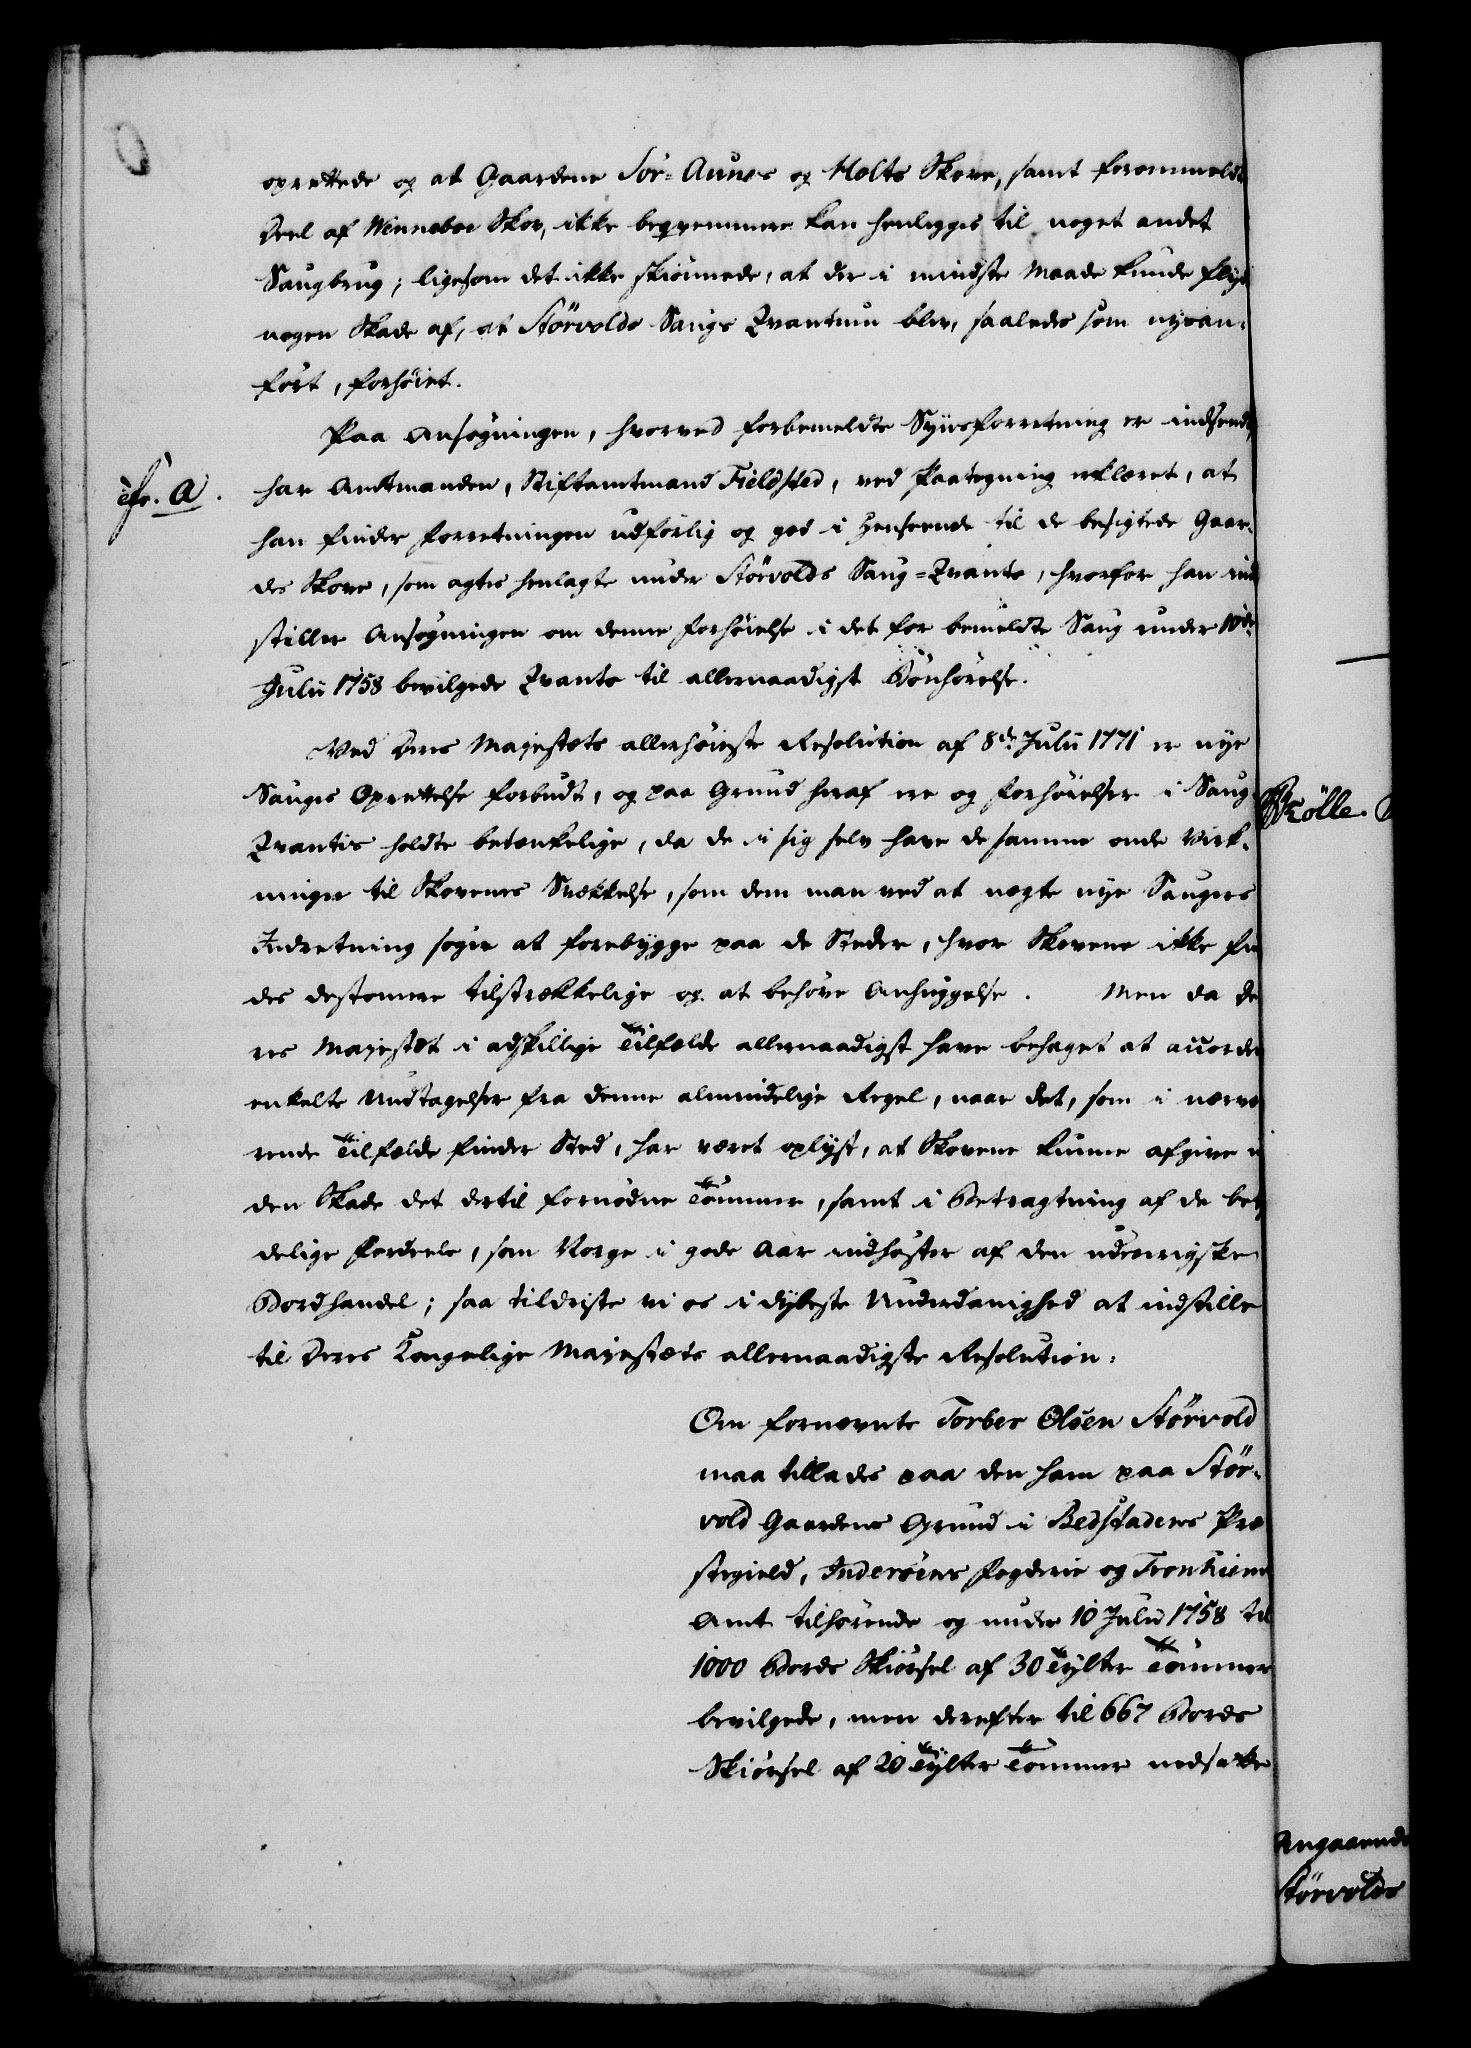 oprettede og at Gaardene Sör-Aunes og Holtes Skove, samt forommeldte
Deel af Winnebøe Skov, ikke beqvemmere kan henlegges til noget andet
Saugbrug; ligesom det ikke skiønnede, at der i mindste Maade kunde flyde
nogen Skade af, at Störvolds Saugs Qvantum blev, saaledes som nysan-
ført, forhøiet.
Paa Ansøgningen, hvorved forbemeldte Synsforretning er indsendt,
cfr. A.
har Amtmanden, Stiftamtmand Fieldsted, ved Paategning erklæret, at
han finder Forretningen udførlig og god i Henseende til de besigtede Gaar-
des Skove, som agtes henlagte under Störvolds Saug-Qvanto, hvorfor han ind
stiller Ansøgningen om denne Forhøielse i det for bemeldte Saug under 10de
Julii 1758 bevilgede Qvanto til allernaadigst Bönhörelse.
Ved Deres Majestæts allerhøieste Resolution af 8de Julii 1771 er nye
Sauges Oprettelse forbudt, og paa Grund heraf ere og Forhøielser i Saug-
Qvantis holdte betænkelige, da de i sig selv have de samme onde Virk-
ninger til Skovenes Svækkelse, som dem man ved at nægte nye Saugers
Indretning søger at forebygge paa de Steder, hvor Skovene ikke fin
des destomere tilstrækkelige og at behøve Anhuggelse. Men da De
res Majestæt i adskillige Tilfælde allernaadigst have behaget at accordere
enkelte Undtagelser fra denne almindelige Regel, naar det, som i nærvæ
rende Tilfælde finder Sted, har været oplyst, at Skovene kunne afgive u
den Skade det dertil fornødne Tömmer, samt i Betragtning af de bety
delige Fordeele, som Norge i gode Aar indhøster af den udenrigske
Bordhandel; saa tildriste vi os i dybeste Underdanighed at indstille
til Deres Kongelige Majestæts allernaadigste Resolution:
Om fornævnte Torber Olsen Störvold
maa tillades paa den ham paa Stör-
vold Gaardens Grund i Bedstadens Præ
stegield, Inderöens Fogderie og Tronhiems
Amt tilhørende og under 10 Julii 1758 til
1000 Bords Skiörsel af 30 Tylter Tömmer
bevilgede, men derefter til 667 Bords
Skiörsel af 20 Tylter Tömmer nedsatte
Angaaende
Störvolds